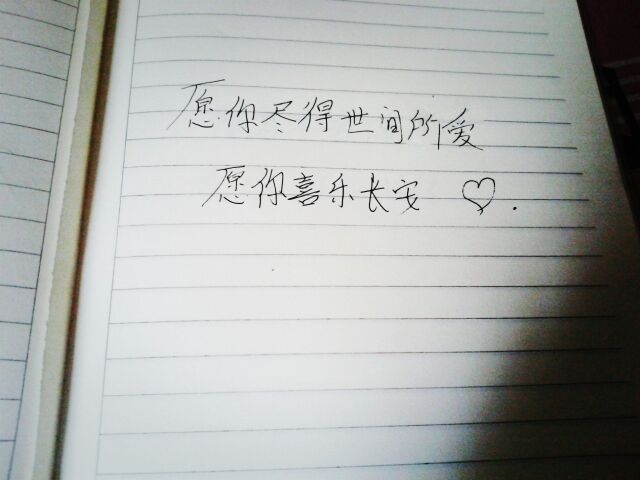 愿你尽得世间所爱
愿你喜乐长安 ♡.